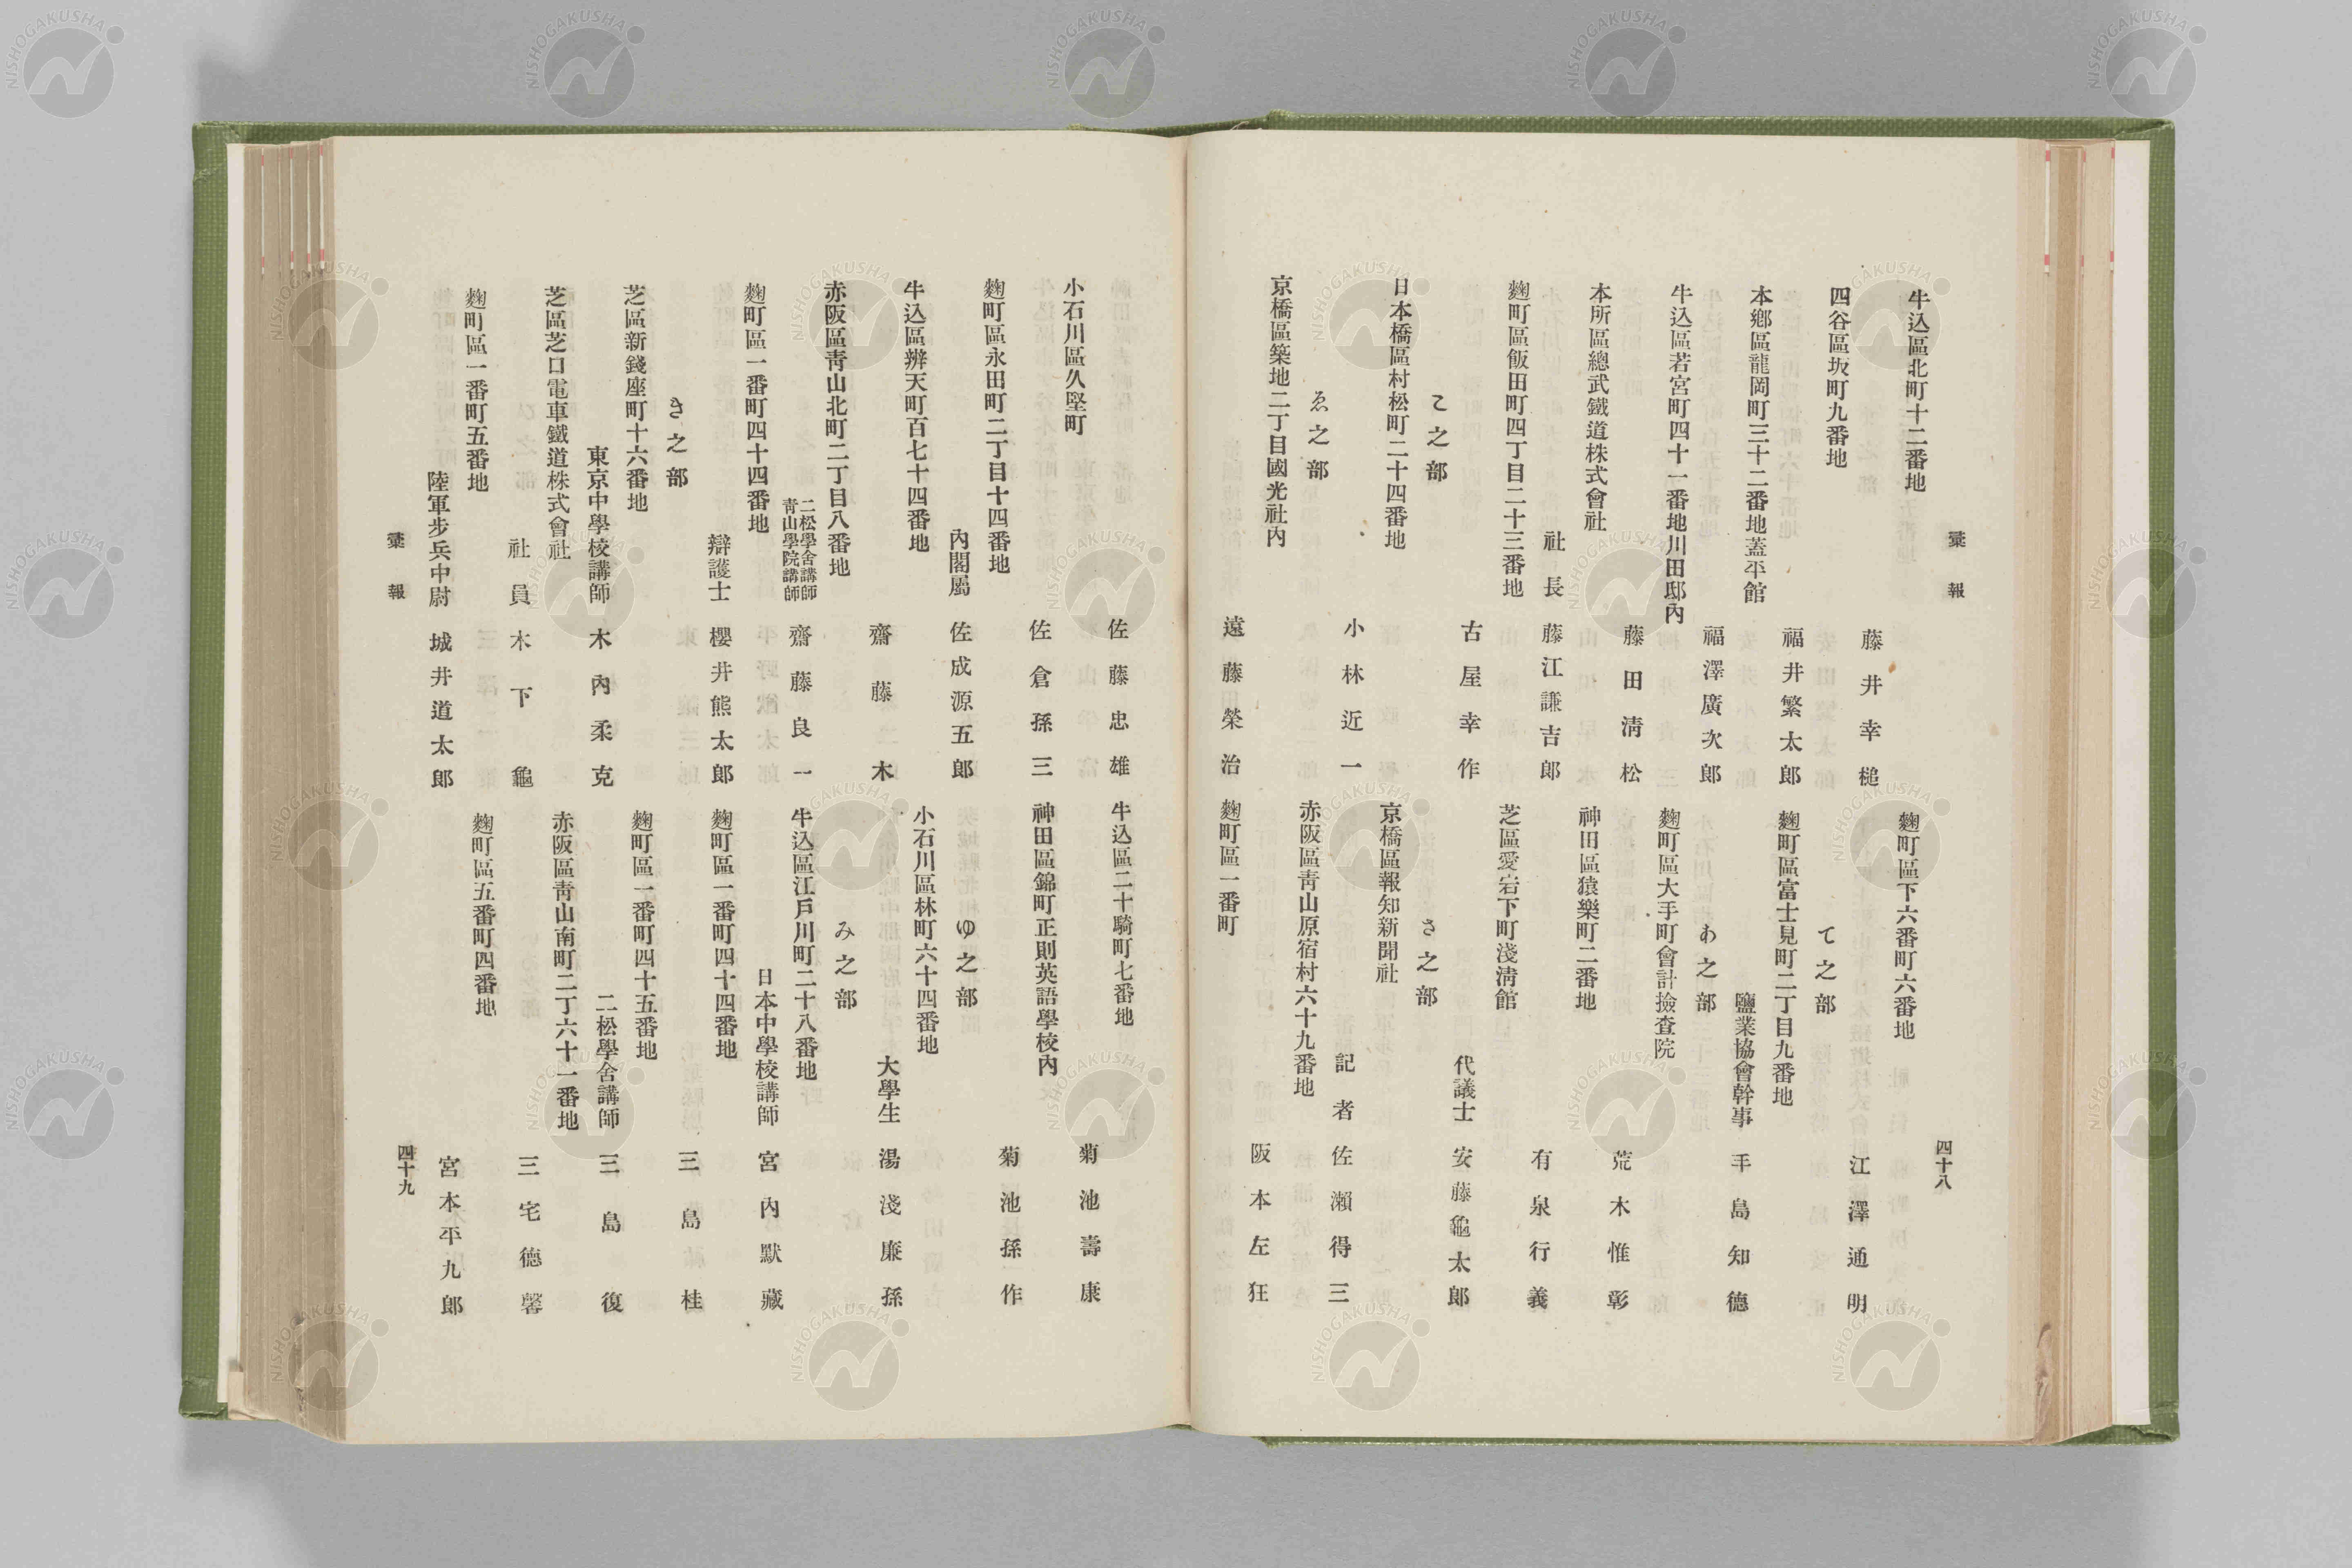 彙報
四十八
牛込區北町十二番地
藤井幸槌
四谷區坂町九番地
福井繁太郎
本鄕區龍岡町三十二番地蓋平館
福澤廣次郎
牛込區若宮町四十一番地川田邸內
藤田淸松
本所區總武鐵道株式會社
社長
藤江謙吉郎
麴町區飯田町四丁目二十三番地
古屋幸作
こ之部
日本橋區村松町二十四番地
小林近一
ゑ之部
京橋區築地二丁目國光社內
遠藤榮治
麴町區下六番町六番地
江澤通明
て之部
麴町區富士見町二丁目九番地
鹽業協會幹事
手島知德
あ之部
麴町區大手町會計撿查院
荒木惟彰
神田區猿樂町二番地
有泉行義
芝區愛宕下町淺淸館
代議士
安藤龜太郎
さ之部
京橋區報知新聞社
記者
佐瀨得三
赤阪區靑山原宿村六十九番地
阪本左狂
麴町區一番町
小石川區久堅町
佐藤忠雄
麴町區永田町二丁目十四番地
佐倉孫三
內閣屬
佐成源五郎
牛込區辨天町百七十四番地
齋藤木
赤阪區靑山北町二丁目八番地
二松學舍講師
靑山學院講師
齋藤良一
麴町區一番町四十四番地
辯護士
櫻井熊太郎
き之部
芝區新錢座町十六番地
東京中學校講師
木內柔克
芝區芝口電車鐵道株式會社
社員
木下龜
麴町區一番町五番地
陸軍步兵中尉
城井道太郎
牛込區二十騎町七番地
菊池壽康
神田區錦町正則英語學校內
菊池孫作
ゆ之部
小石川區林町六十四番地
大學生
湯淺廉孫
み之部
牛込區江戶川町二十八番地
日本中學校講師
宮內默藏
麴町區一番町四十四番地
三島桂
麴町區一番町四十五番地
二松學舍講師
三島復
赤阪區靑山南町二丁六十一番地
三宅德馨
麴町區五番町四番地
宮本平九郎
彙報
四十九